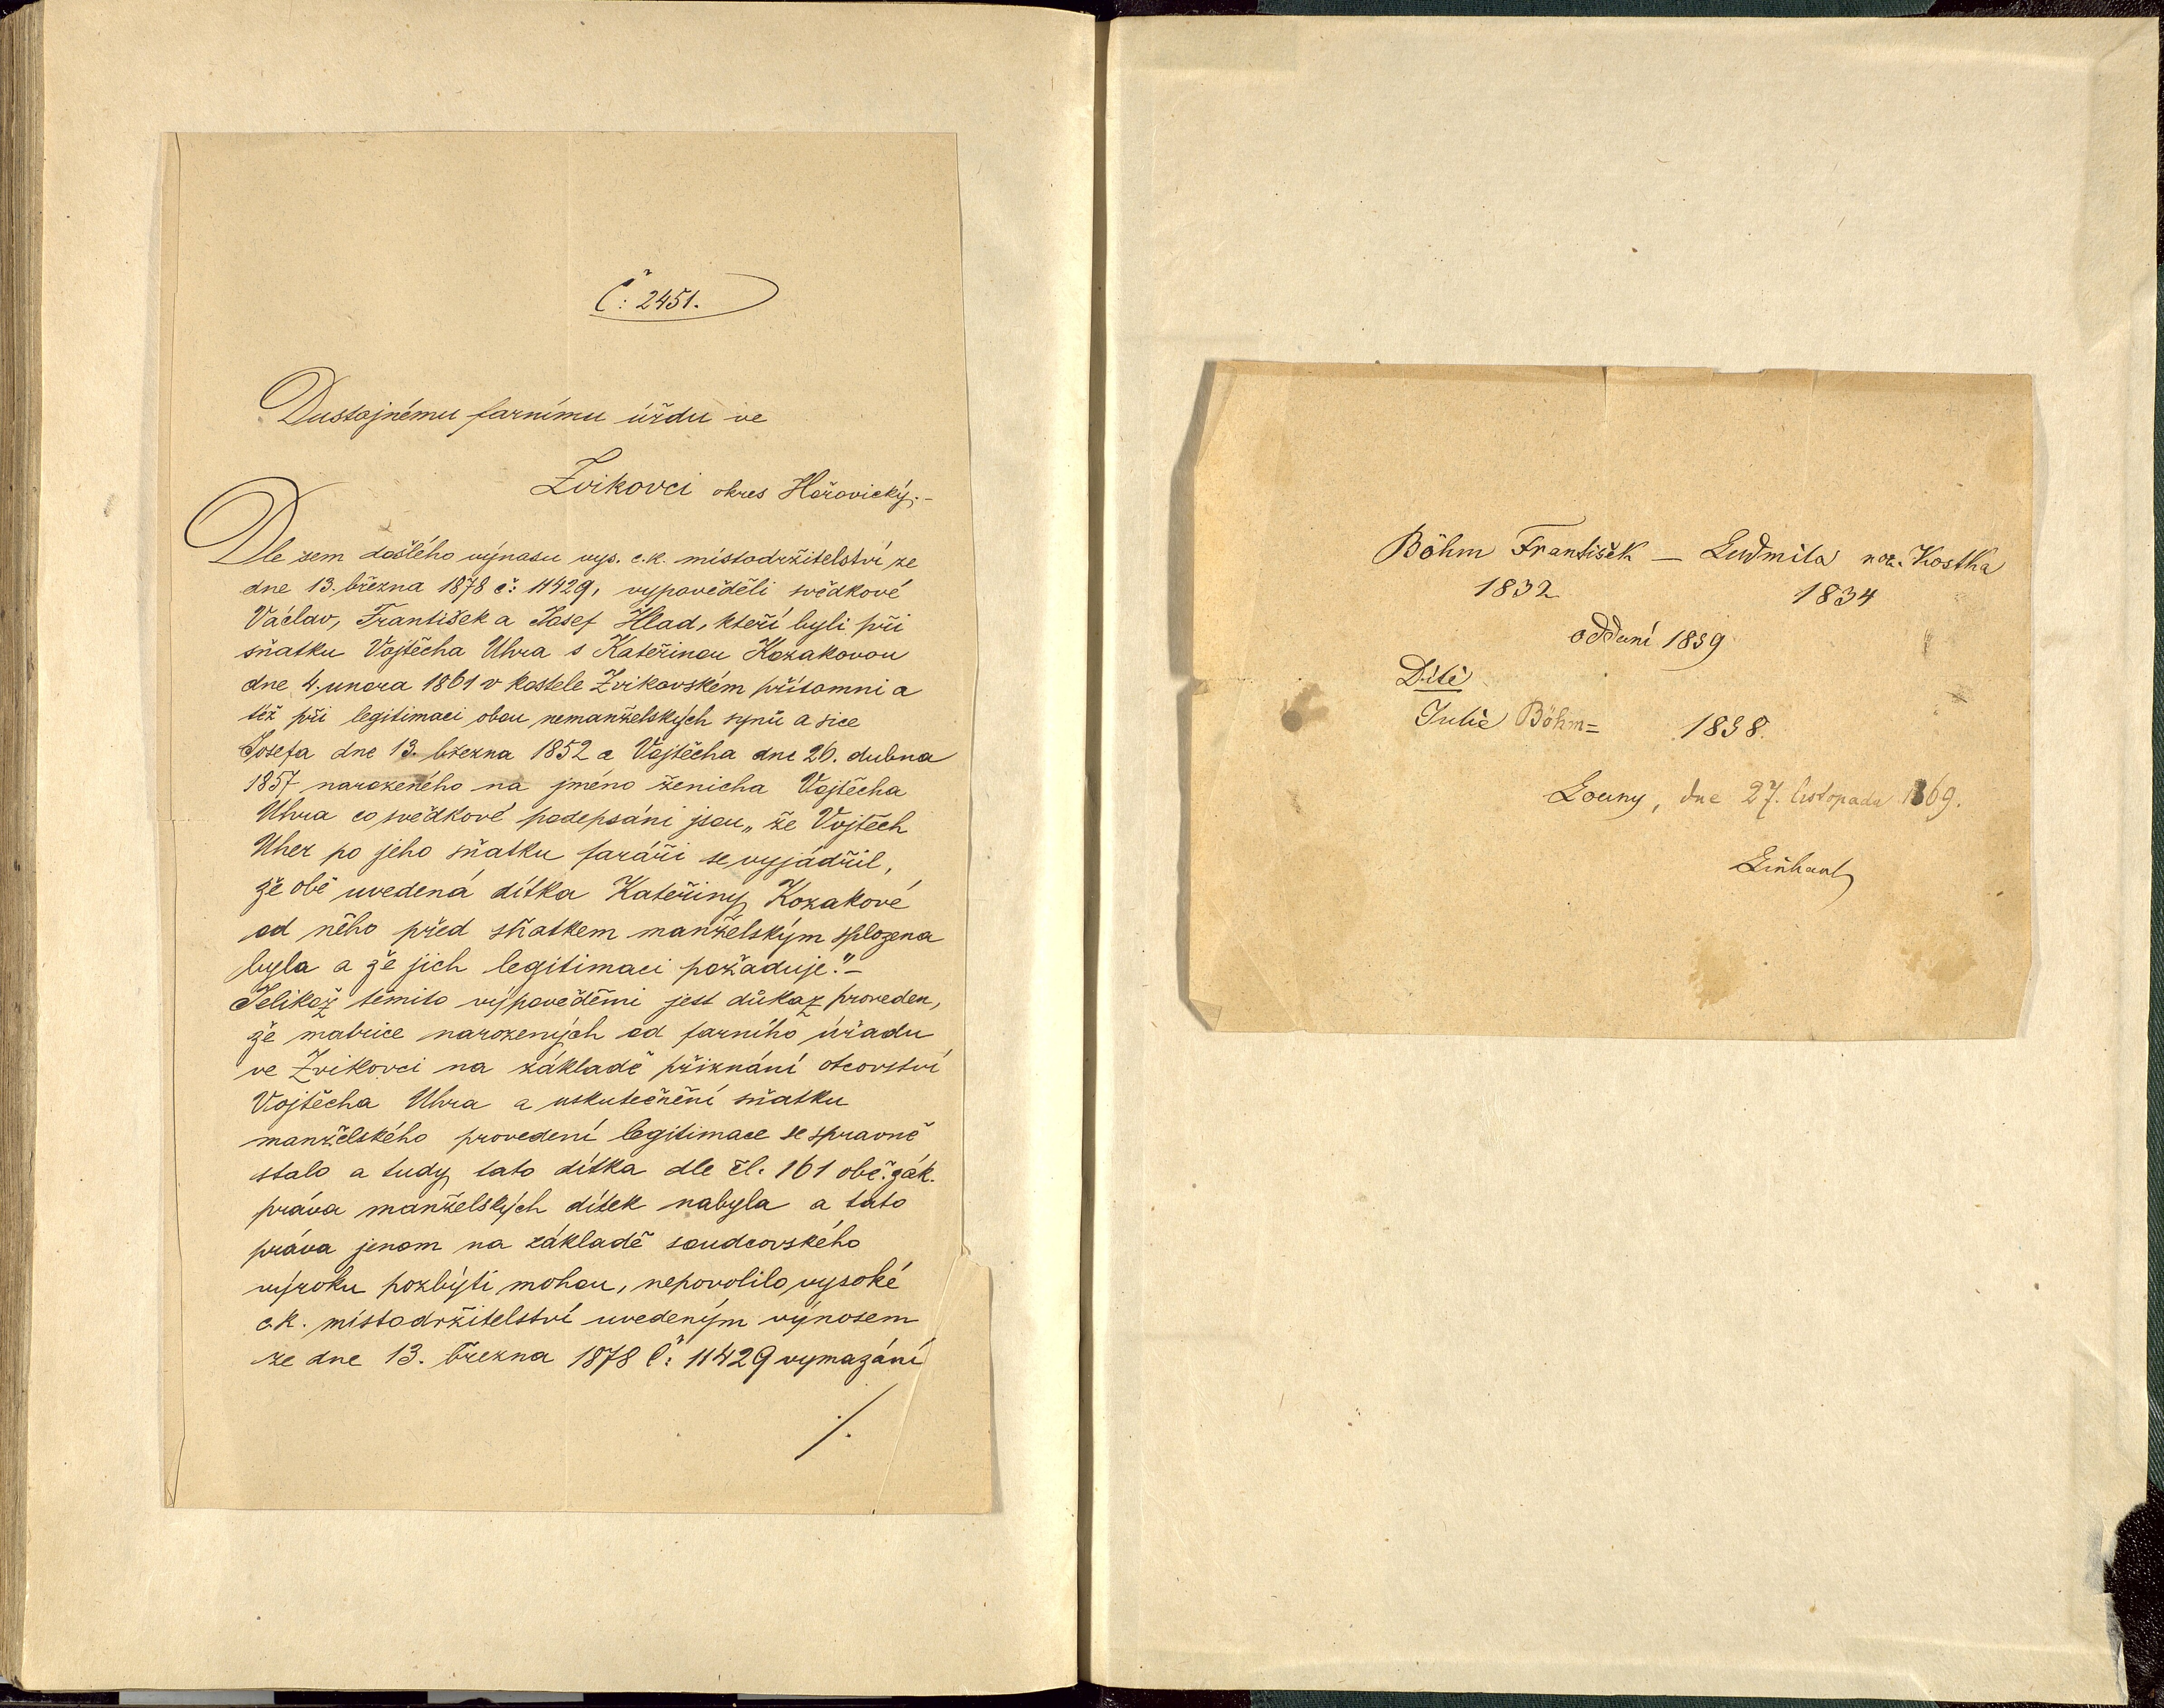 Č: 2451.
Dustojnému farnímu úřdu ve
Zvikovci okres Hořovický.-
Dle sem došlého výnasu vys. c.k. místodržitelství ze
dne 13. března 1878 č: 11429, vypověděli svědkové
Václav, František a Josef Hlad, kteří byli při
sňatku Vojtěcha Uhra s Kateřinou Kozakovou
dne 4. unora 1861 v kostele Zvikovském přítomni a
též při legitimaci obou nemanželských synů a sice
Josefa dne 13. března 1852 a Vojtěcha dne 26. dubna
1857 narozeného na jméno ženicha Vojtěcha
Uhra co svědkové podepsáni jsou „že Vojtěch
Uher po jeho sňatku faráři se vyjádřil,
že obě uvedená dítka Kateřiny Kozakové
od něho před sňatkem manželským splozena
byla a že jich legitimaci požaduje."-
Jelikož těmito výpověděmi jest důkaz proveden,
že matrice narozených od farního úřadu
ve Zvikovci na základě přiznání otcovství
Vojtěcha Uhra a uskutečnění sňatku
manželského provedení legitimace se spravně
stalo a tudy tato dítka dle čl. 161 obč. zák.
práva manželských dítek nabyla a tato
práva jenom na základě soudcovského
výroku pozbýti mohou, nepovolilo vysoké
c.k. místodržitelství uvedeným výnosem
ze dne 13. března 1878 Č: 11429 vymazání
./.
Böhm František — Ludmila roz. Kostka
1832 1834
oddaní 1859
Dítě
Julie Böhm= 1858.
Louny, dne 27. listopadu 1869.